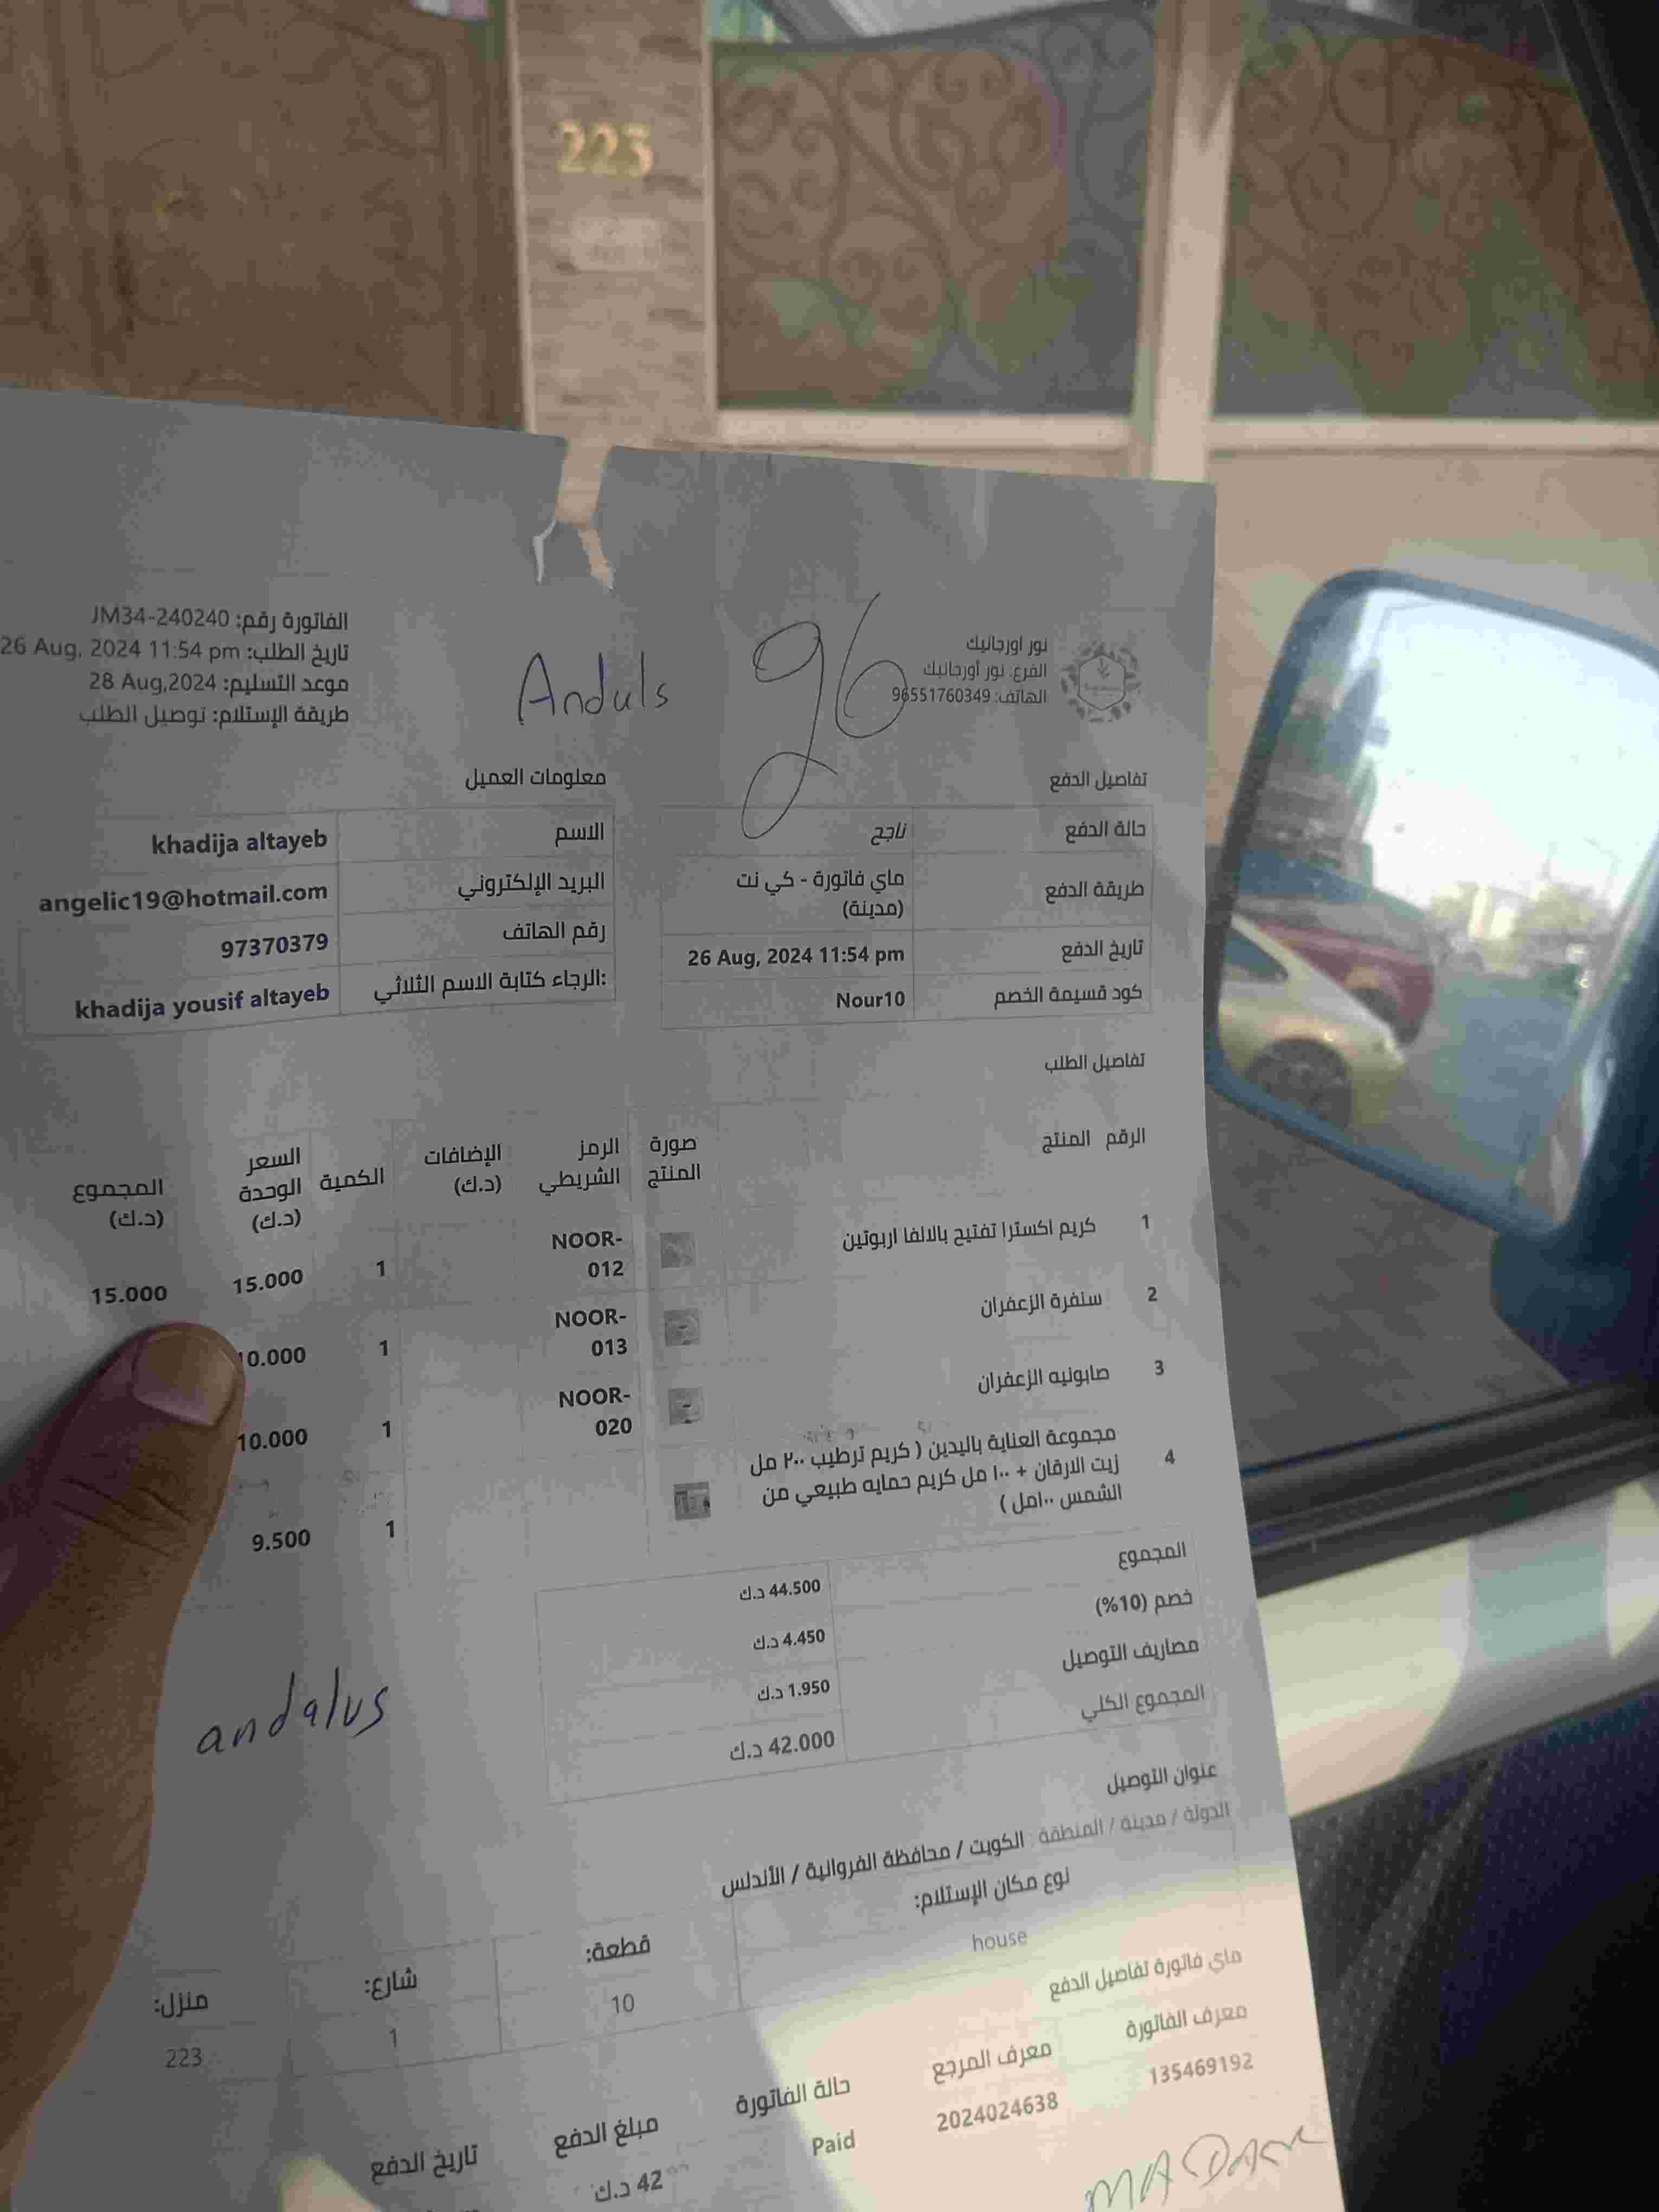 223
نور اورجانيك
الفرع: نور أورجانيك
الهاتف: 96551760349
96
Anduls
الفاتورة رقم: JM34-240240
تاريخ الطلب: 26 Aug, 2024 11:54 pm
موعد التسليم: 28 Aug,2024
طريقة الإستلام: توصيل الطلب
تفاصيل الدفع
حالة الدفع ناجح
طريقة الدفع ماي فاتورة - كي نت
(مدينة)
تاريخ الدفع 26 Aug, 2024 11:54 pm
كود قسيمة الخصم Nour10
معلومات العميل
الاسم khadija altayeb
البريد الإلكتروني angelic19@hotmail.com
رقم الهاتف 97370379
الرجاء كتابة الاسم الثلاثي: khadija yousif altayeb
تفاصيل الطلب
الرقم المنتج صورة المنتج الرمز الشريطي الإضافات (د.ك) الكمية السعر الوحدة (د.ك) المجموع (د.ك)
1 كريم اكسترا تفتيح بالالفا اربوتين NOOR-012 1 15.000 15.000
2 سنفرة الزعفران NOOR-013 1 10.000
3 صابونيه الزعفران NOOR-020 1 10.000
4 مجموعة العناية باليدين ( كريم ترطيب ٢٠٠ مل
زيت الارقان + ١٠٠ مل كريم حمايه طبيعي من
الشمس ١٠٠مل ) 1 9.500
المجموع 44.500 د.ك
خصم (10%) 4.450 د.ك
مصاريف التوصيل 1.950 د.ك
المجموع الكلي 42.000 د.ك
andalus
عنوان التوصيل
الدولة / مدينة / المنطقة : الكويت / محافظة الفروانية / الأندلس
نوع مكان الإستلام: قطعة: شارع: منزل:
house 10 1 223
ماي فاتورة تفاصيل الدفع
معرف الفاتورة معرف المرجع حالة الفاتورة مبلغ الدفع تاريخ الدفع
135469192 2024024638 Paid 42 د.ك